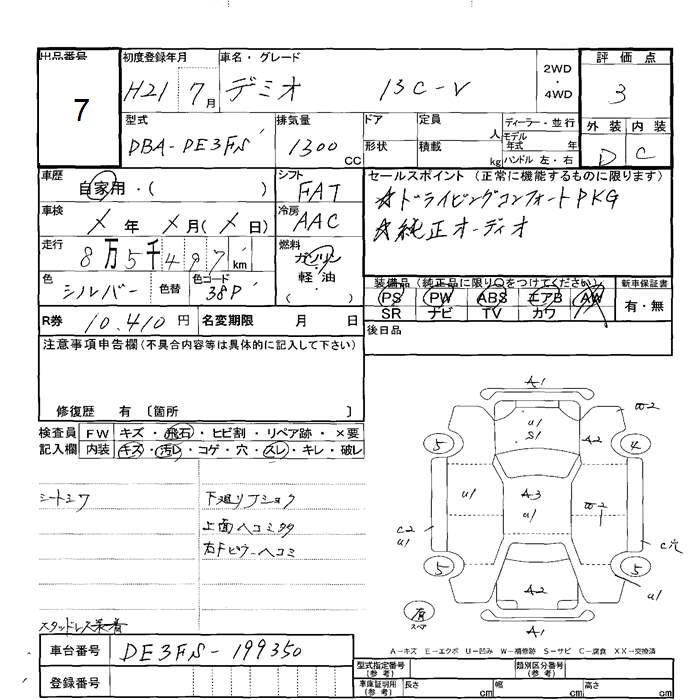 出品番号
7
初度登録年月
H21 7月
車名・グレード
デミオ 13C-V
2WD
・
4WD
評価点
3
外装 内装
D C
型式
DBA-DE3FS
排気量
1300 CC
ドア
形状
定員 人
積載 kg
ディーラー・並行
モデル年式 年
ハンドル 左・右
車歴
自家用・( )
シフト
FAT
車検
X 年 X 月( X 日)
冷房
AAC
走行
8万5千497 km
燃料
ガソリン
軽・油
( )
色
シルバー
色替
色コード
38P
セールスポイント (正常に機能するものに限ります)
☆ドライビングコンフォートPKG
☆純正オーディオ
装備品 (純正品に限り○をつけてください) 新車保証書
PS PW ABS エアB AW
SR ナビ TV カワ
有・無
R券 10,410 円 名変期限 月 日
後日品
注意事項申告欄(不具合内容等は具体的に記入して下さい)
修復歴 有 〔箇所 〕
検査員 FW キズ・飛石・ヒビ割・リペア跡・×要
記入欄 内装 キズ・汚レ・コゲ・穴・スレ・キレ・破レ
シートシワ
下廻りフショク
上面ヘコミタタ
右Fピラーヘコミ
スタッドレス装着
車台番号 DE3FS-199350
登録番号
A1
W2
U1
S1
A2
5
4
U1
A3
U1
W2
1
C2
U1
C穴
5
5
A2
U1
有
スペア
A1
A-キズ E-エクボ U-凹み W-補修跡 S-サビ C-腐食 XX-交換済
型式指定番号(参考) 類別区分番号(参考)
車庫証明用(参考) 長さ cm 幅 cm 高さ cm